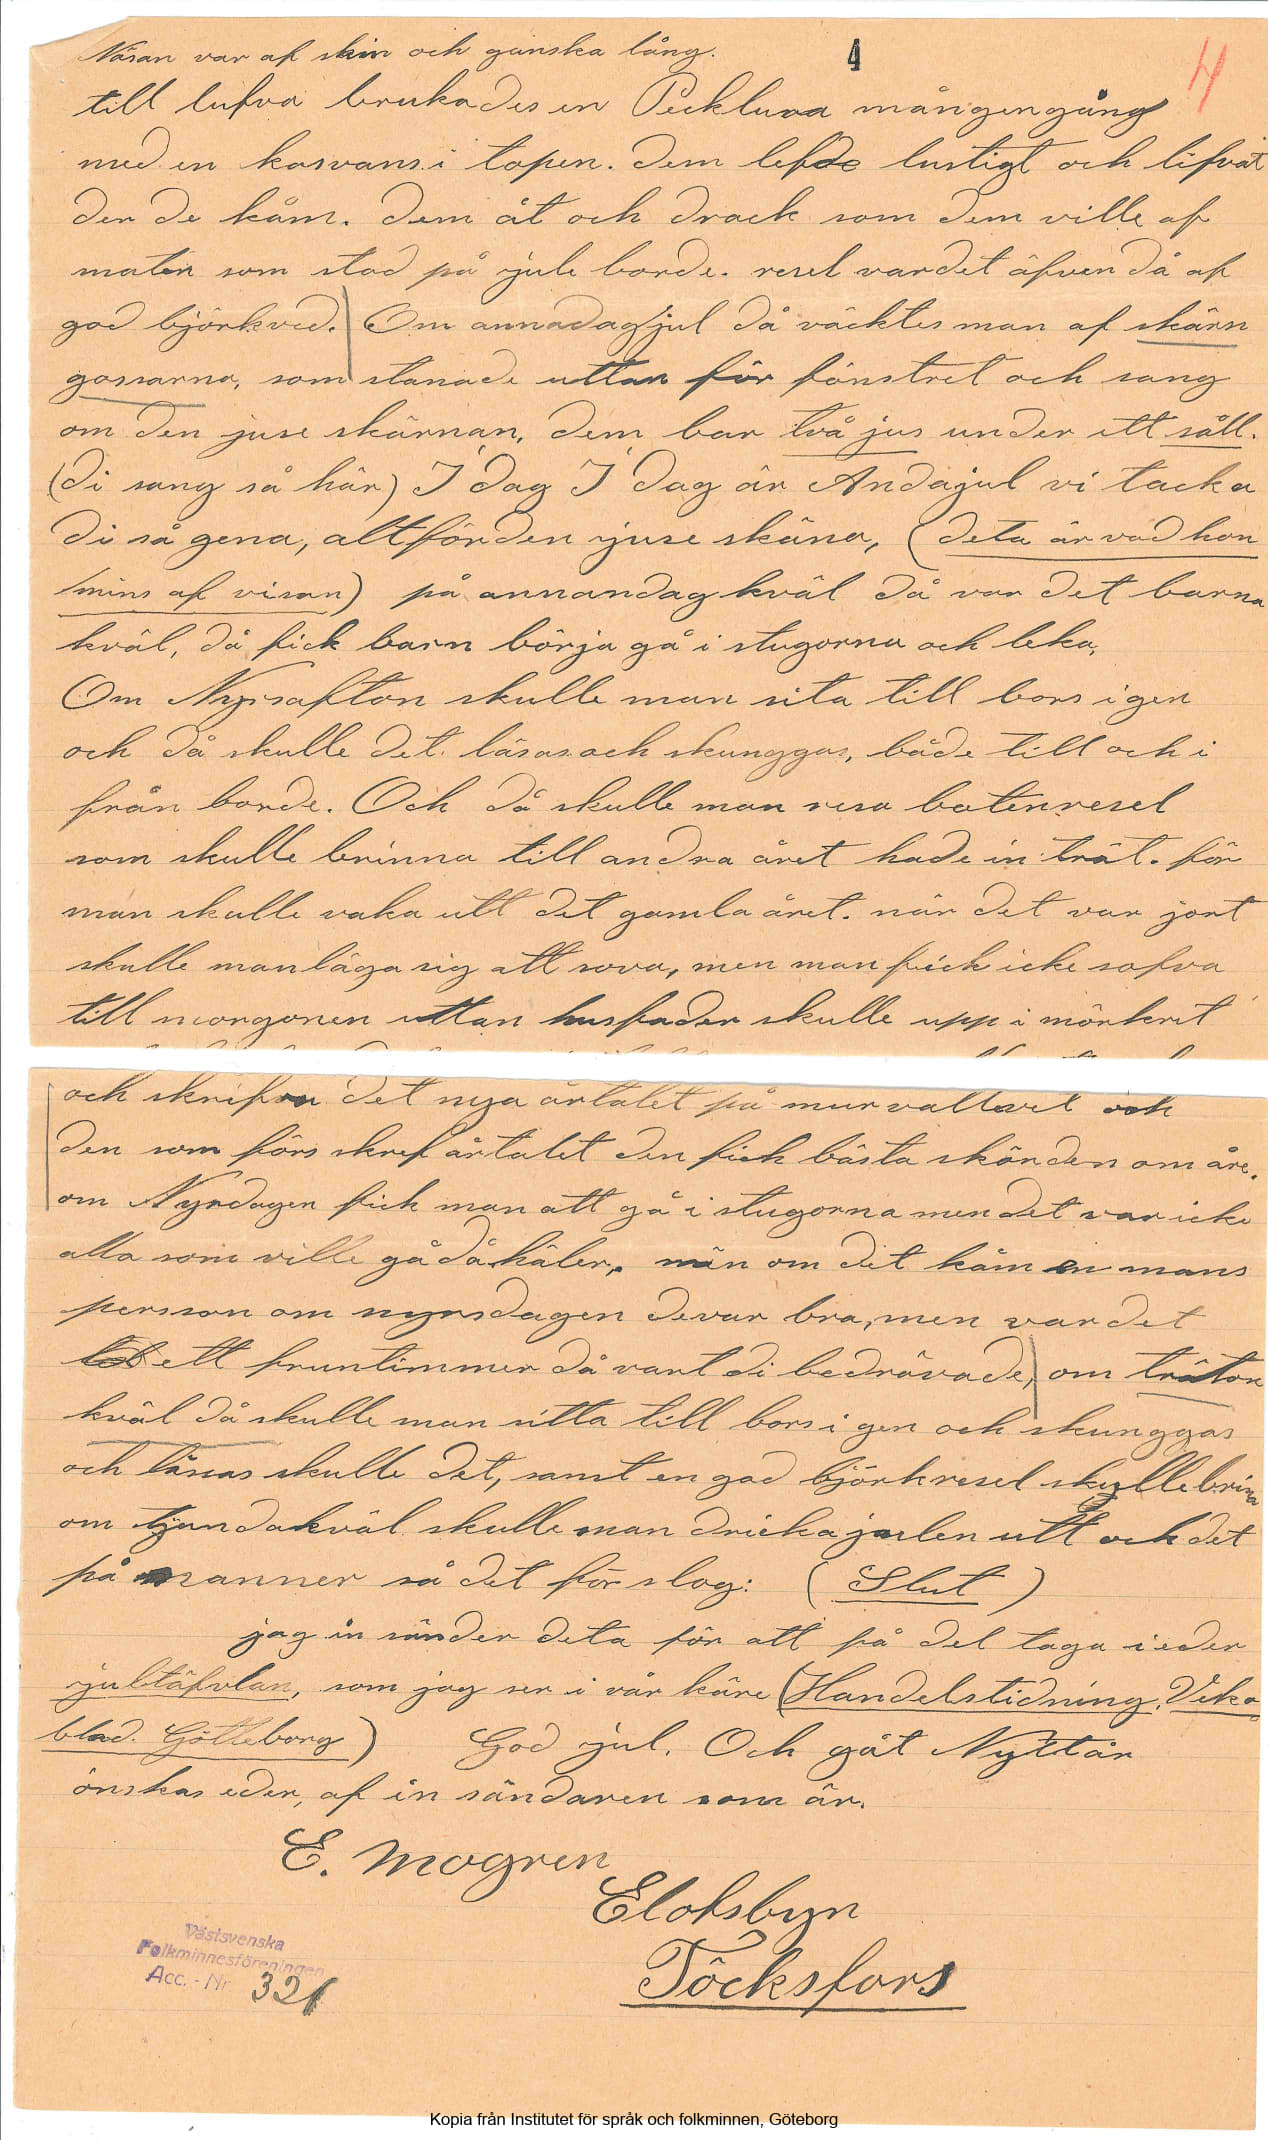 Näsan var af skin och ganska lång.
4
4
till lufva brukades en Peckluva mångengång
med en kosvans i topen. dem lefde lustigt och lifvat
der de kåm. dem åt och drack som dem ville af
maten som stod på jule borde. resel vardet äfven då af
god björkved. Om annadagjul då väcktes man af skärn
gossarna, som stanade uttan för fönstret och sang
om den juse skärnan, dem bar två jus under ett såll.
(di sang så här) I dag I dag är Andajul vi tacka
di så gena, altförden juse skäna, (deta är vad hon
mins af visan) på annandag kväl då var det barna
kväl, då fick barn börja gå i stugorna och leka.
Om Nyrsafton skulle man sita till bors igen
och då skulle det läsas och skunggas, både till och i
från borde. Och då skulle man resa botenresel
som skulle brinna till andra året hade in trät. för
man skulle vaka utt det gamla året. när det var jort
skulle man läga sig att sova, men man fick icke sofva
till morgonen uttan husfader skulle upp i mörkret
och skrifva det nya årtalet på murvallvel och
den som förs skref årtalet den fick bästa skörden om åre.
om Nyrdagen fick man att gå i stugorna men det var icke
alla som ville gå då häler, män om det kåm en mans
persson om nyrsdagen devar bra, men var det
ett fruntimmer då vart di bedrövade, om tråton
kväl då skulle man sitta till bors i gen och skunggas
och läsas skulle det, samt en god björkresel skulle brina
om tjundakväl skulle man dricka julen utt och det
på manner så det för slog: (Slut)
jag in sänder deta för att få del taga i eder
jultäfvlan, som jag ser i vår käre (Handelstidning. Veko
blad. Götteborg) God jul. Och gåt Nyttår
önskas eder, af in sändaren som är.
E. Mogren
Elofsbyn
Töcksfors
Västsvenska
Folkminnesföreningen
Acc. - Nr 321
Kopia från Institutet för språk och folkminnen, Göteborg